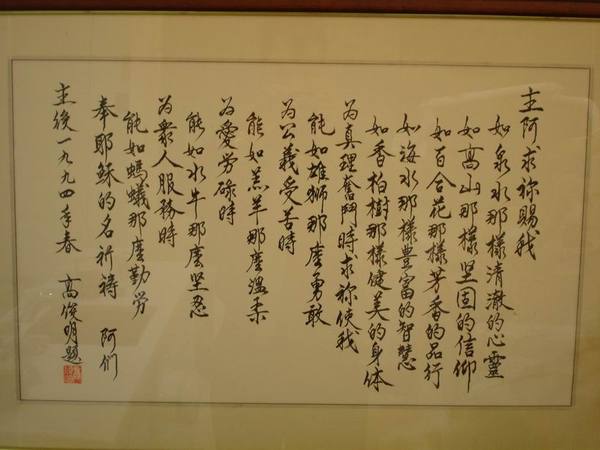 主阿求祢賜我
如泉水那樣清澈的心靈
如高山那樣坚固的信仰
如百合花那樣芳香的品行
如海水那樣豊富的智慧
如香柏樹那樣健美的身体
為真理奮鬥時求祢使我
能如雄獅那麼勇敢
為公義受苦時
能如羔羊那麼溫柔
為愛勞碌時
能如水牛那麼坚忍
為衆人服務時
能如螞蟻那麼勤勞
奉耶穌的名祈禱 阿们
主後一九九四年春 高俊明題